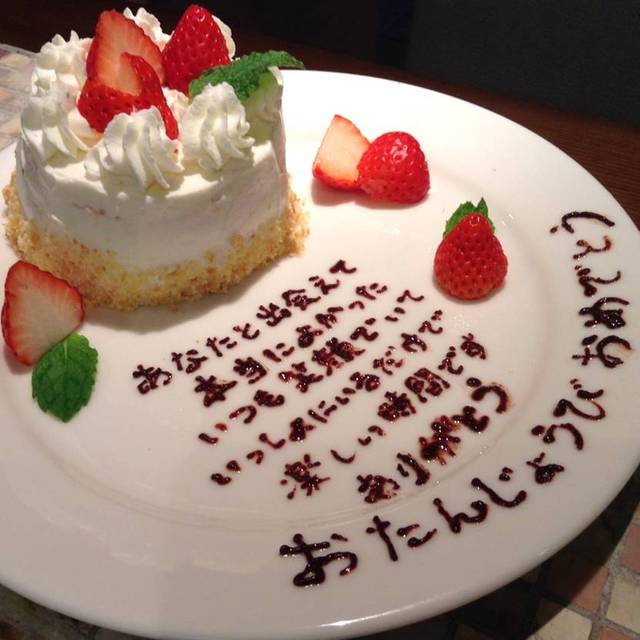 あなたと出会えて
本当によかった
いつも笑顔でいて
いっしょにいるだけで
楽しい時間です
ありがとう
おたんじょうび